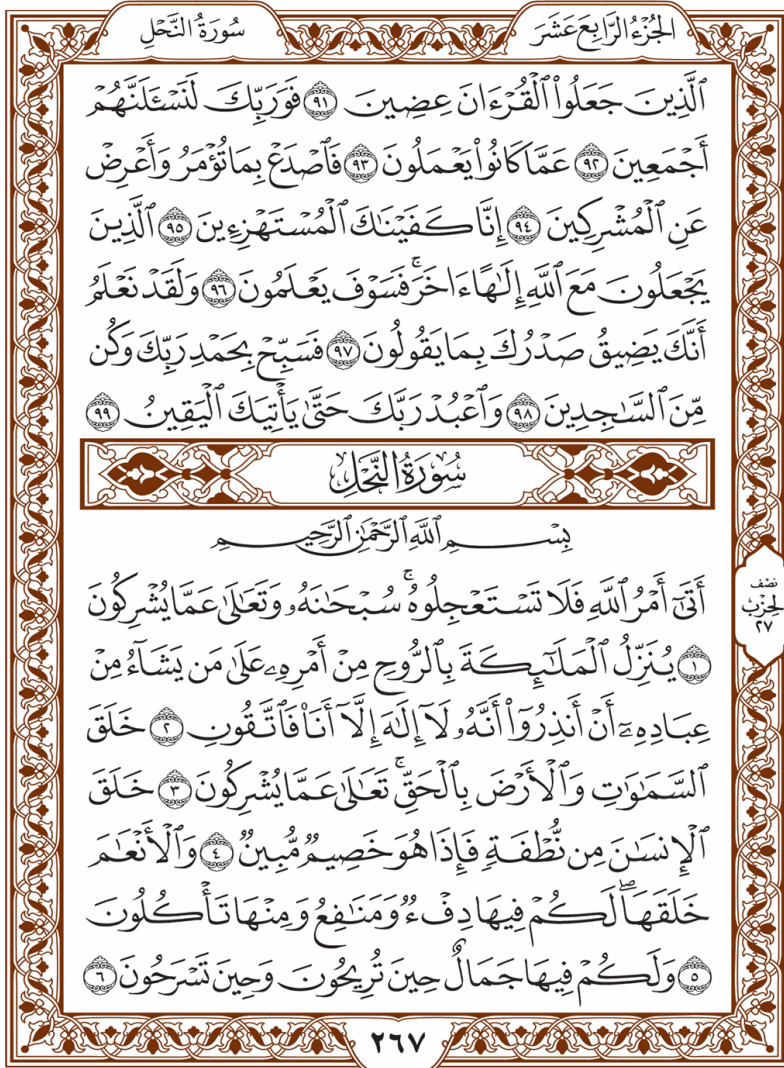 الجُزْءُ الرَّابِعَ عَشَرَ
سُورَةُ النَّحْلِ
ٱلَّذِينَ جَعَلُوا۟ ٱلْقُرْءَانَ عِضِينَ ٩١ فَوَرَبِّكَ لَنَسْـَٔلَنَّهُمْ
أَجْمَعِينَ ٩٢ عَمَّا كَانُوا۟ يَعْمَلُونَ ٩٣ فَٱصْدَعْ بِمَا تُؤْمَرُ وَأَعْرِضْ
عَنِ ٱلْمُشْرِكِينَ ٩٤ إِنَّا كَفَيْنَـٰكَ ٱلْمُسْتَهْزِءِينَ ٩٥ ٱلَّذِينَ
يَجْعَلُونَ مَعَ ٱللَّهِ إِلَـٰهًا ءَاخَرَ ۚ فَسَوْفَ يَعْلَمُونَ ٩٦ وَلَقَدْ نَعْلَمُ
أَنَّكَ يَضِيقُ صَدْرُكَ بِمَا يَقُولُونَ ٩٧ فَسَبِّحْ بِحَمْدِ رَبِّكَ وَكُن
مِّنَ ٱلسَّـٰجِدِينَ ٩٨ وَٱعْبُدْ رَبَّكَ حَتَّىٰ يَأْتِيَكَ ٱلْيَقِينُ ٩٩
سُورَةُ النَّحْلِ
بِسْمِ ٱللَّهِ ٱلرَّحْمَـٰنِ ٱلرَّحِيمِ
أَتَىٰٓ أَمْرُ ٱللَّهِ فَلَا تَسْتَعْجِلُوهُ ۚ سُبْحَـٰنَهُۥ وَتَعَـٰلَىٰ عَمَّا يُشْرِكُونَ
١ يُنَزِّلُ ٱلْمَلَـٰٓئِكَةَ بِٱلرُّوحِ مِنْ أَمْرِهِۦ عَلَىٰ مَن يَشَآءُ مِنْ
عِبَادِهِۦٓ أَنْ أَنذِرُوٓا۟ أَنَّهُۥ لَآ إِلَـٰهَ إِلَّآ أَنَا۠ فَٱتَّقُونِ ٢ خَلَقَ
ٱلسَّمَـٰوَٰتِ وَٱلْأَرْضَ بِٱلْحَقِّ ۚ تَعَـٰلَىٰ عَمَّا يُشْرِكُونَ ٣ خَلَقَ
ٱلْإِنسَـٰنَ مِن نُّطْفَةٍ فَإِذَا هُوَ خَصِيمٌ مُّبِينٌ ٤ وَٱلْأَنْعَـٰمَ
خَلَقَهَا ۗ لَكُمْ فِيهَا دِفْءٌ وَمَنَـٰفِعُ وَمِنْهَا تَأْكُلُونَ
٥ وَلَكُمْ فِيهَا جَمَالٌ حِينَ تُرِيحُونَ وَحِينَ تَسْرَحُونَ ٦
نصف
الحزب
٢٧
٢٦٧